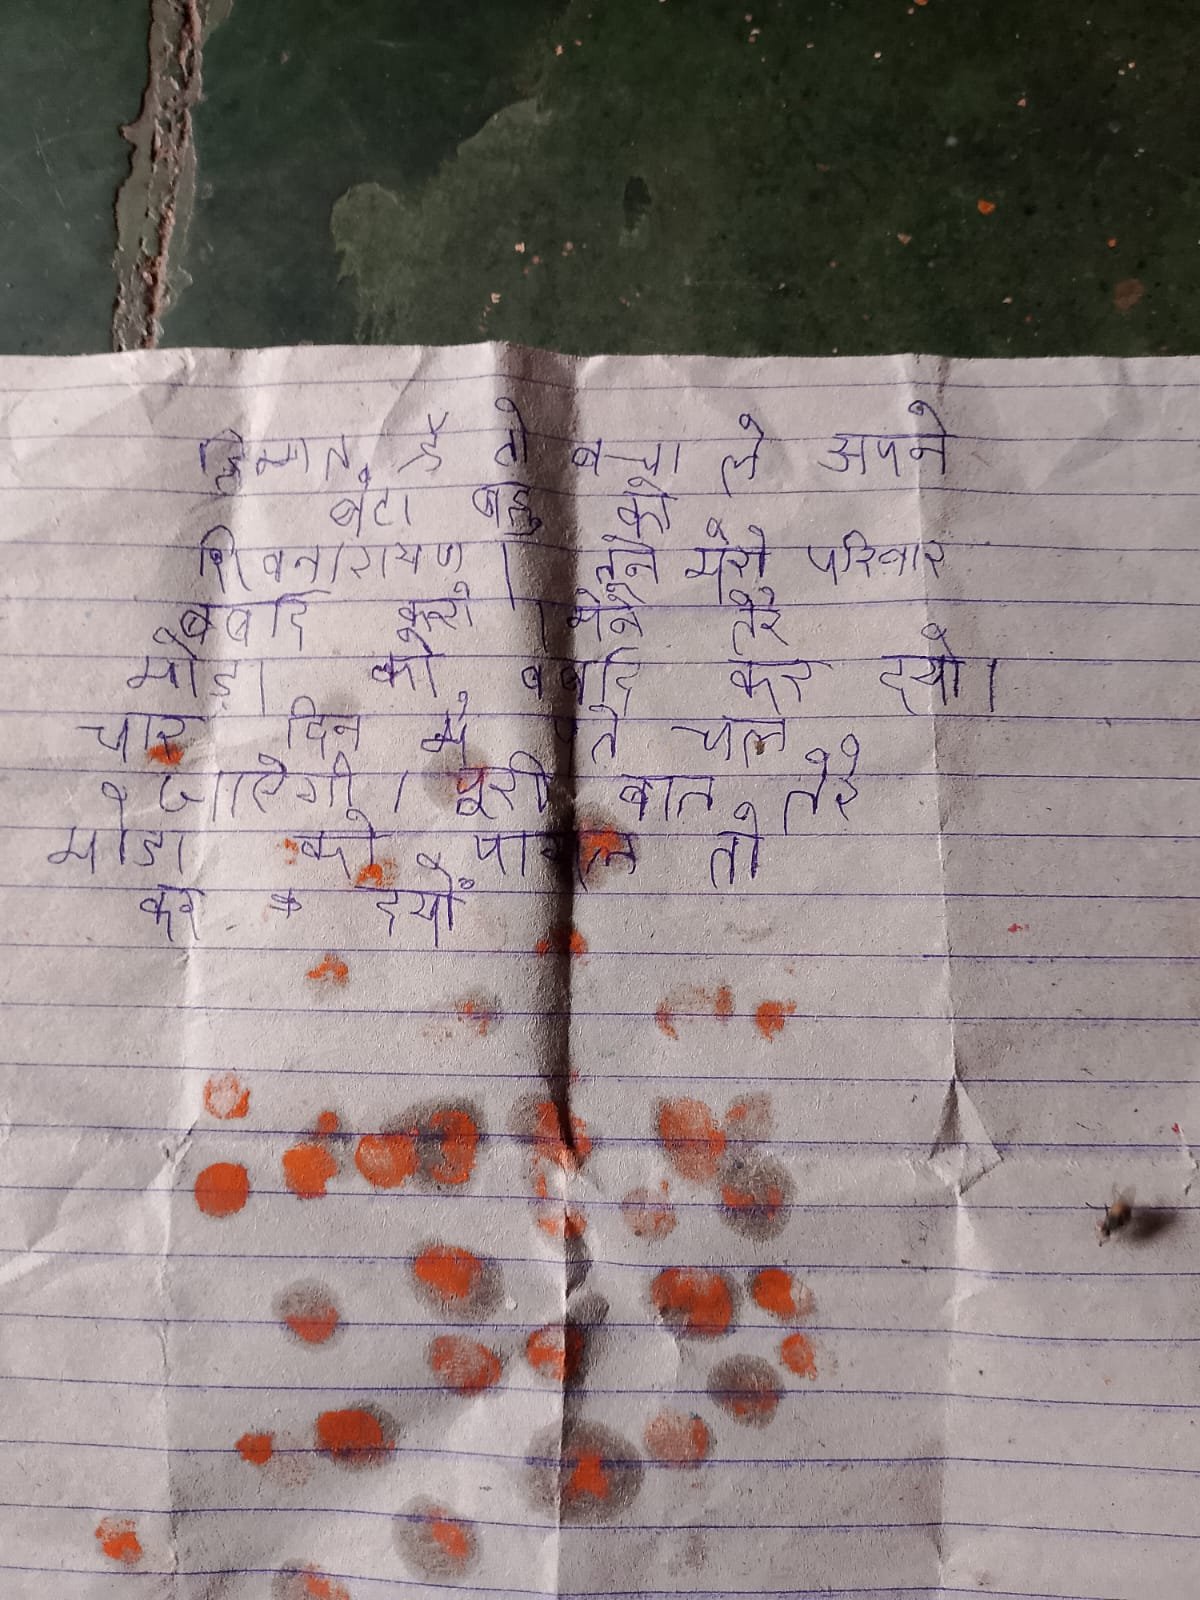 हिम्मत है तो बचा ले अपने
बेटा बहू को
शिवनारायण । तूने मेरो परिवार
बर्बाद करो । मेने तेरे
मोड़ा को बर्बाद कर दयो ।
चार दिन में पते चल
जाऐगी । पूरी बात तेरे
मोडा को पागल तो
कर दयों